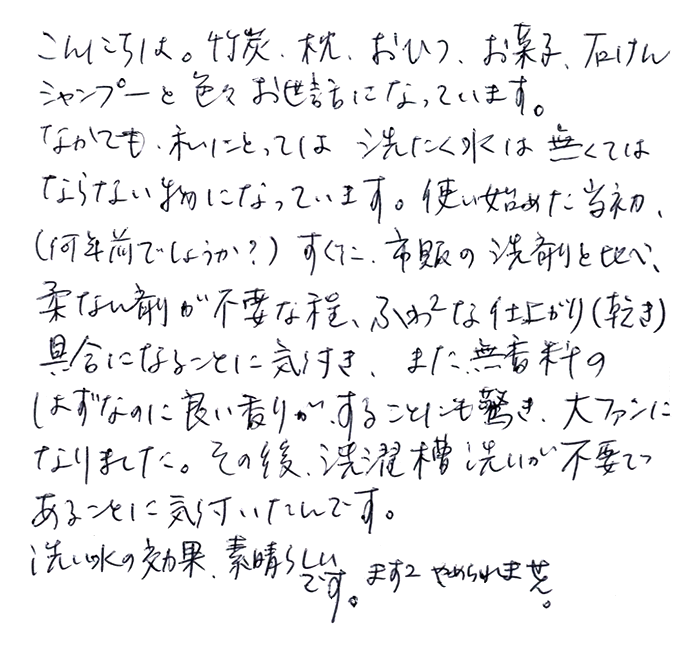 こんにちは。竹炭、枕、おひつ、お菓子、石けん
シャンプーと色々お世話になっています。
なかでも、私にとっては 洗たく水は無くては
ならない物になっています。使い始めた当初、
(何年前でしょうか?)すぐに、市販の洗剤と比べ、
柔なん剤が不要な程、ふわ2な仕上がり(乾き)
具合になることに気付き、また、無香料の
はずなのに良い香りが、することにも驚き、大ファンに
なりました。その後、洗濯槽洗いが不要で
あることに気付いたんです。
洗い水の効果、素晴らしい
です。ます2やめられません。